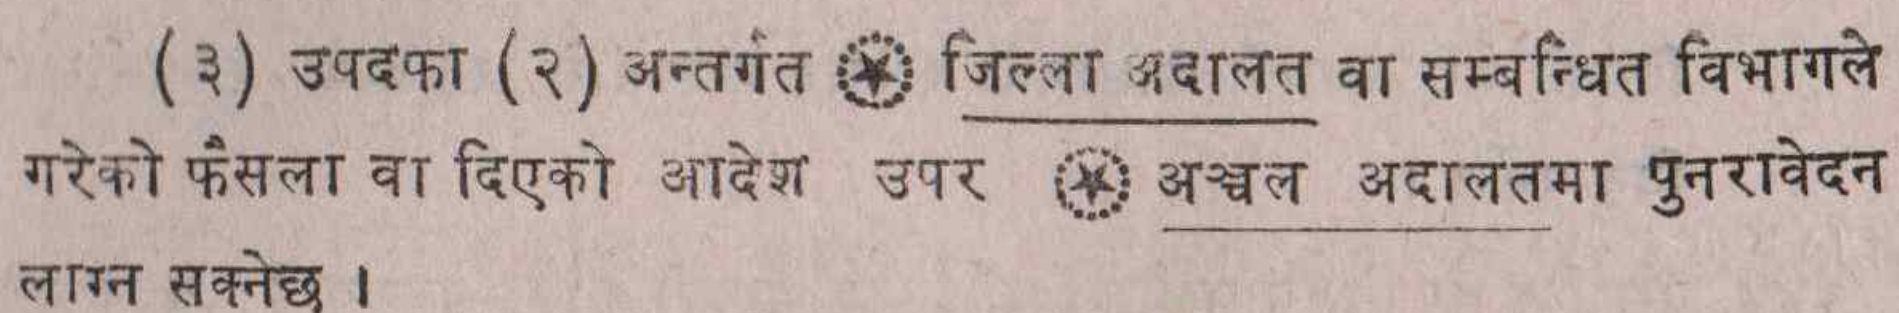 (३) उपदफा (२) अन्तर्गत जिल्ला अदालत वा सम्बन्धित विभागले
गरेको फैसला वा दिएको आदेश उपर अञ्चल अदालतमा पुनरावेदन
लाग्न सक्नेछ ।